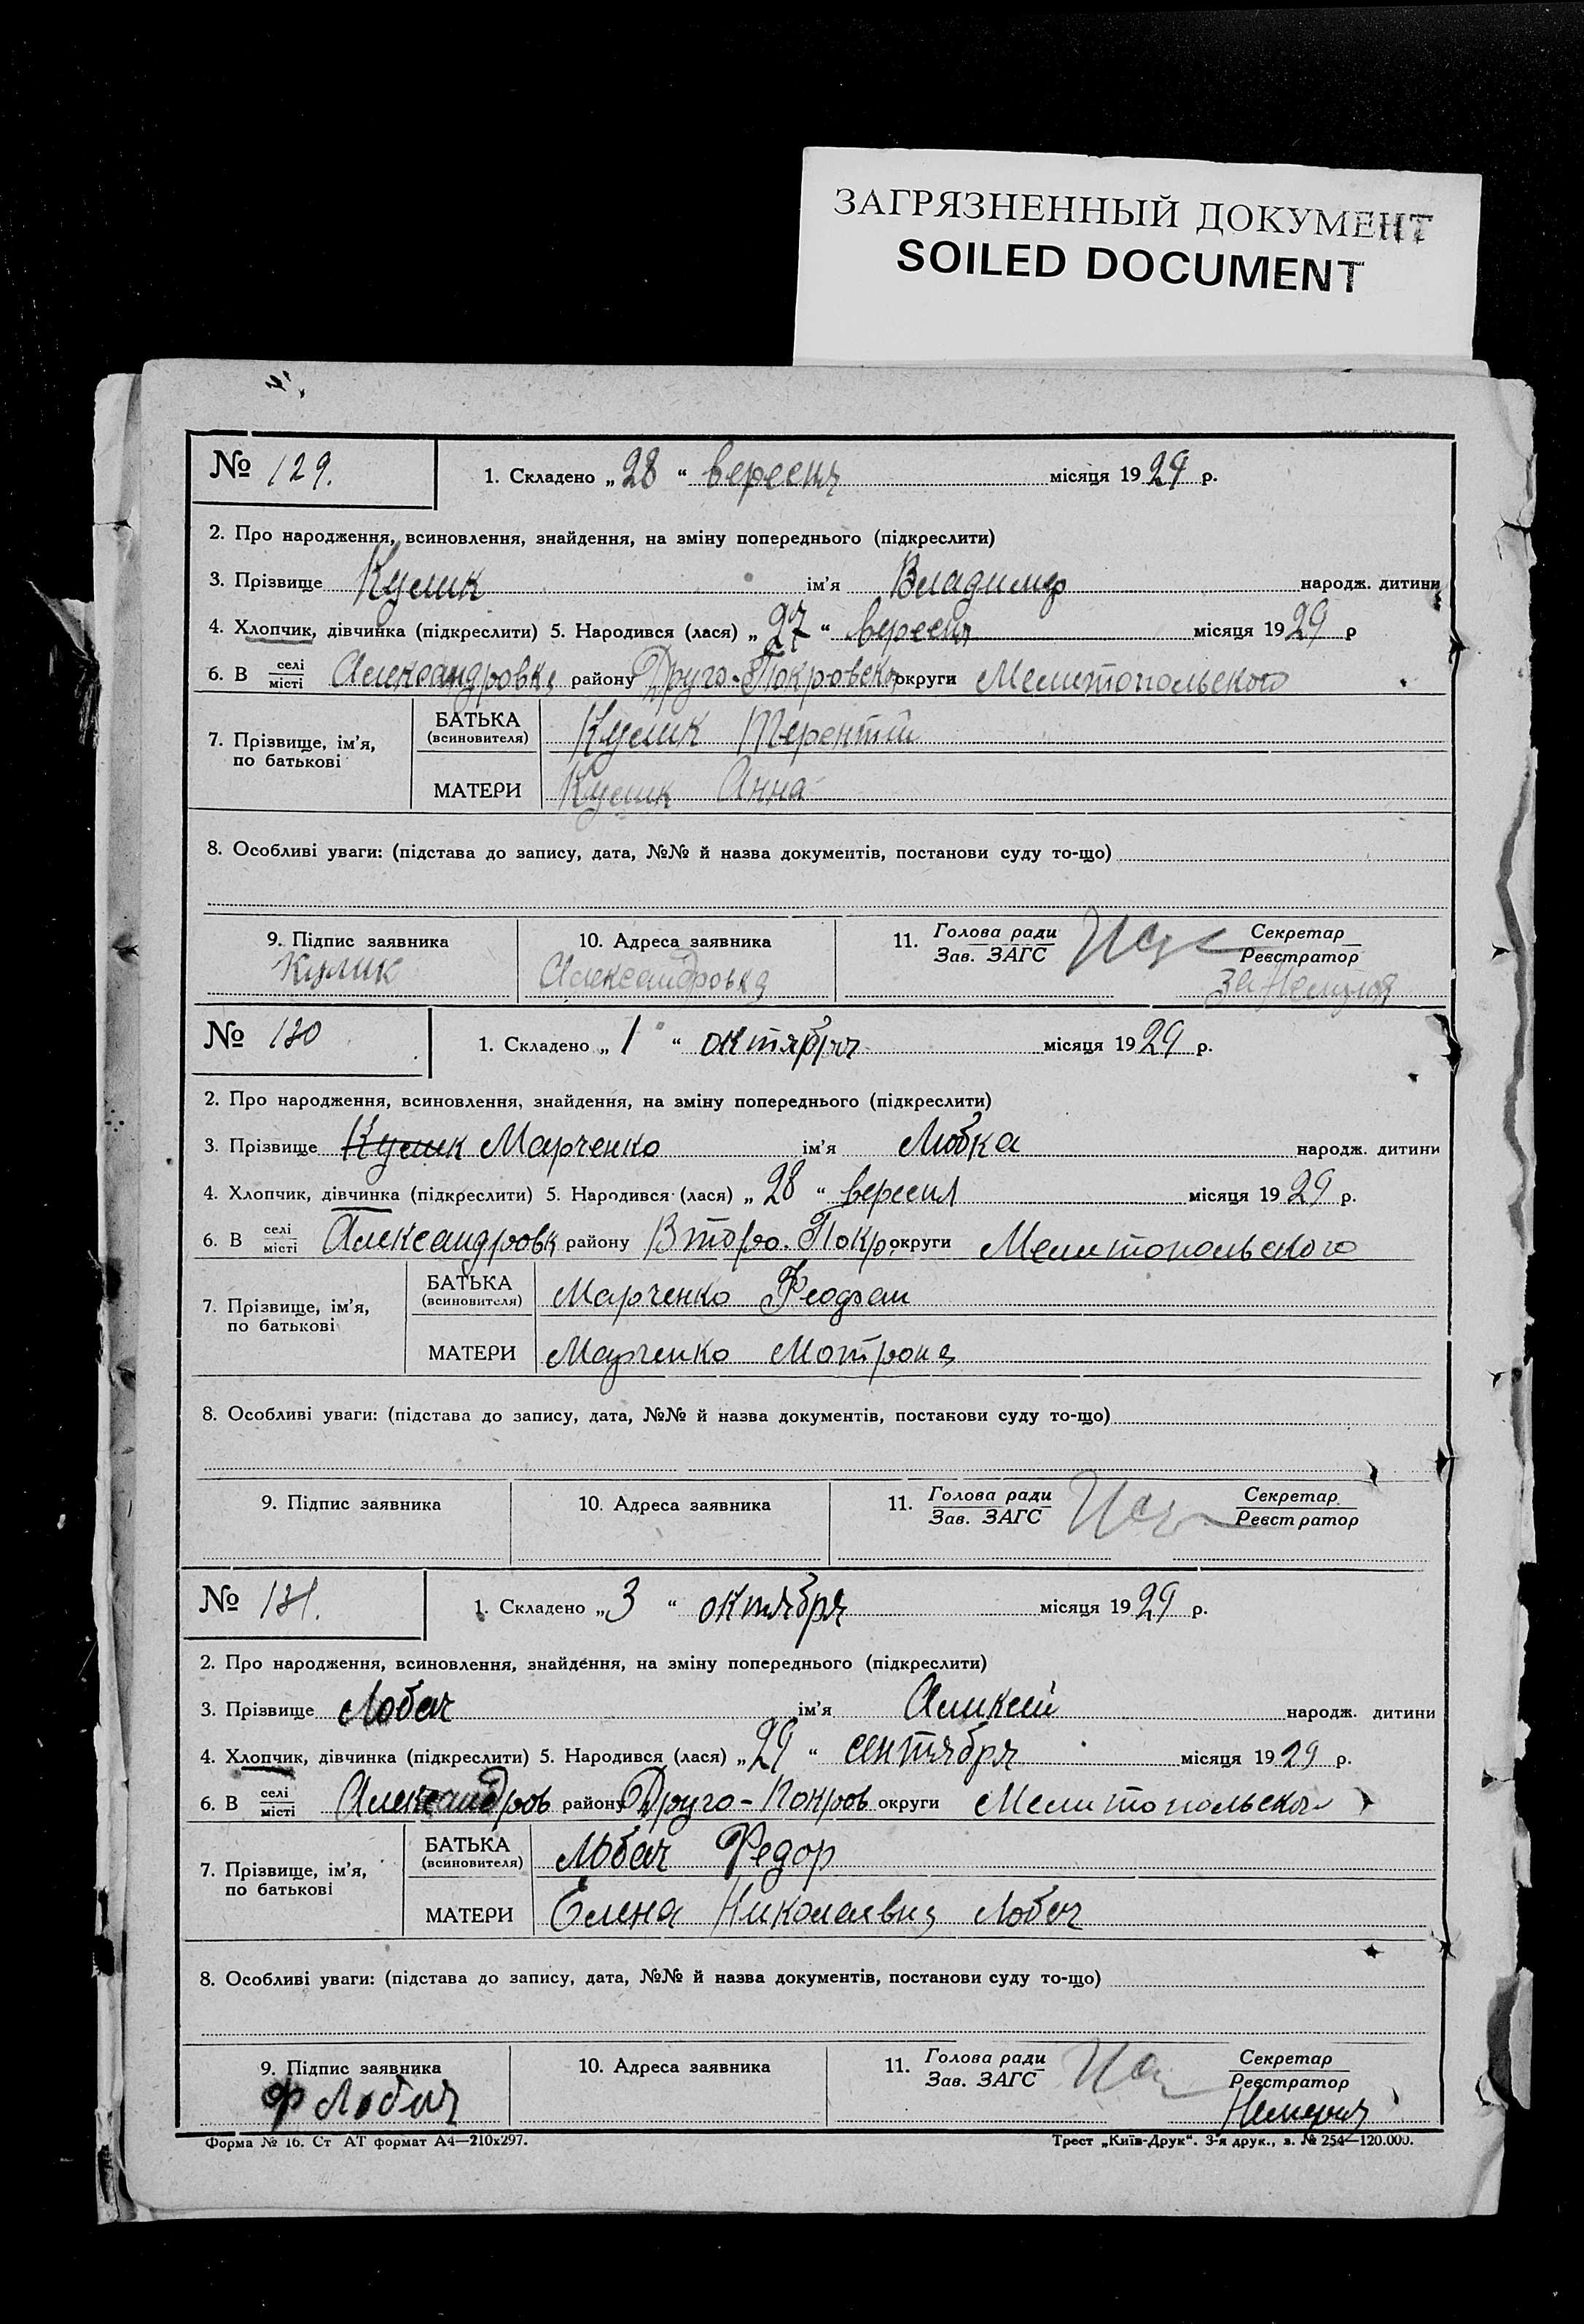 ЗАГРЯЗНЕННЫЙ ДОКУМЕНТ
SOILED DOCUMENT
№ 129.
1. Складено „28“ вересня місяця 1929 р.
2. Про народження, всиновлення, знайдення, на зміну попереднього (підкреслити)
3. Прізвище Кулик ім’я Владимир народж. дитини
4. Хлопчик, дівчинка (підкреслити) 5. Народився (лася) „27“ вересня місяця 1929 р
6. В селі/місті Александровка району Друго-Покровского округи Мелитопольского
7. Прізвище, ім’я, по батькові
БАТЬКА (всиновителя) Кулик Терентий
МАТЕРИ Кулик Анна
8. Особливі уваги: (підстава до запису, дата, №№ й назва документів, постанови суду то-що)
9. Підпис заявника 10. Адреса заявника 11. Голова ради Зав. ЗАГС Секретар Реєстратор
Кулик Александровка за
№ 130
1. Складено „1“ октября місяця 1929 р.
2. Про народження, всиновлення, знайдення, на зміну попереднього (підкреслити)
3. Прізвище Кулик Марченко ім’я Любка народж. дитини
4. Хлопчик, дівчинка (підкреслити) 5. Народився (лася) „28“ вересня місяця 1929 р.
6. В селі/місті Александровк району Второ-Покр. округи Мелитопольского
7. Прізвище, ім’я, по батькові
БАТЬКА (всиновителя) Марченко
МАТЕРИ Марченко Мотрона
8. Особливі уваги: (підстава до запису, дата, №№ й назва документів, постанови суду то-що)
9. Підпис заявника 10. Адреса заявника 11. Голова ради Зав. ЗАГС Секретар Реєстратор
№ 131.
1. Складено „3“ октября місяця 1929 р.
2. Про народження, всиновлення, знайдення, на зміну попереднього (підкреслити)
3. Прізвище Лобач ім’я Аликсей народж. дитини
4. Хлопчик, дівчинка (підкреслити) 5. Народився (лася) „29“ сентября місяця 1929 р.
6. В селі/місті Александров району Друго-Покров округи Мелитопольского
7. Прізвище, ім’я, по батькові
БАТЬКА (всиновителя) Лобач Федор
МАТЕРИ Елена Николаевна Лобач
8. Особливі уваги: (підстава до запису, дата, №№ й назва документів, постанови суду то-що)
9. Підпис заявника 10. Адреса заявника 11. Голова ради Зав. ЗАГС Секретар Реєстратор
Ф Лобач
Форма № 16. Ст АТ формат А4—210х297. Трест „Київ-Друк“. 3-я друк., з. № 254—120.000.